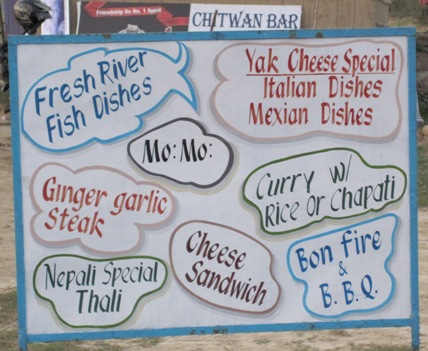 Friendship No. 1 Spirit
CHITWAN BAR
Fresh River
Fish Dishes
Yak Cheese Special
Italian Dishes
Mexian Dishes
Mo: Mo:
Ginger garlic
Steak
Curry w/
Rice Or Chapati
Cheese
Sandwich
Nepali Special
Thali
Bon fire
&
B.B.Q.